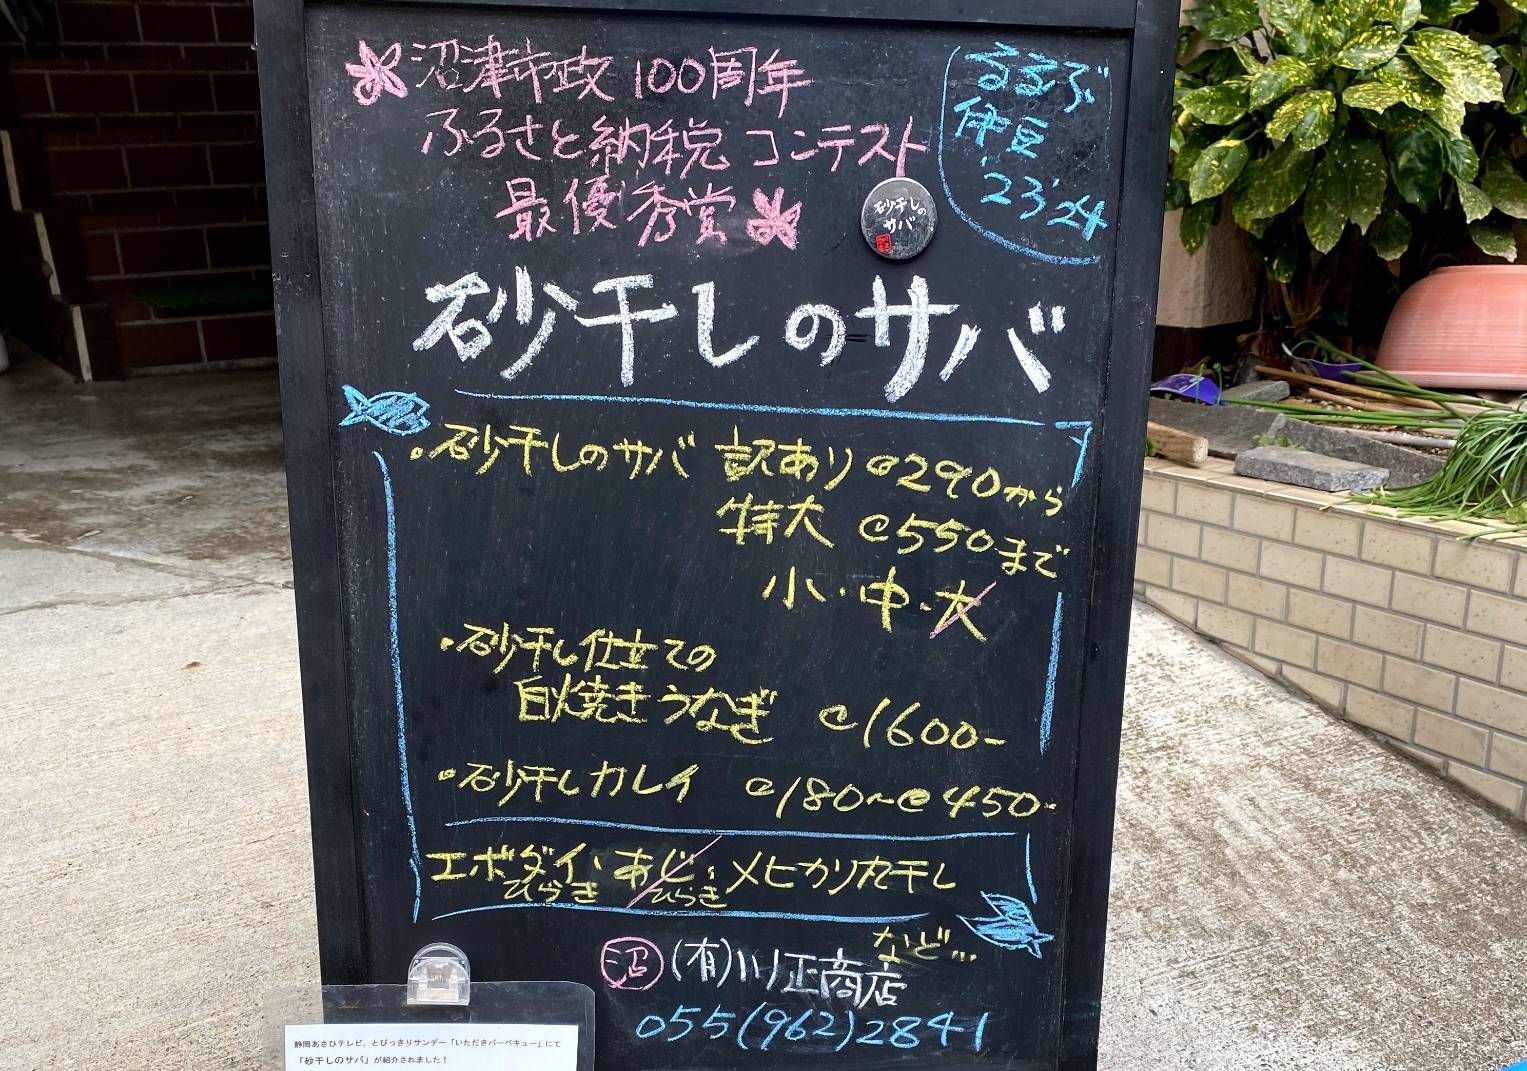 沼津市政100周年
ふるさと納税コンテスト
最優秀賞
るるぶ
伊豆
'23'24
砂干しの
サバ
砂干しのサバ
・砂干しのサバ 訳あり@290から
特大 @550まで
小・中・大
・砂干し仕立ての
白焼きうなぎ @1600-
・砂干しカレイ @180〜@450-
エボダイ、あじ、メヒカリ丸干し
ひらき ひらき
など…
沼 (有)川正商店
055(962)2841
静岡あさひテレビ、とびっきりサンデー「いただきバーベキュー」にて
「砂干しのサバ」が紹介されました！